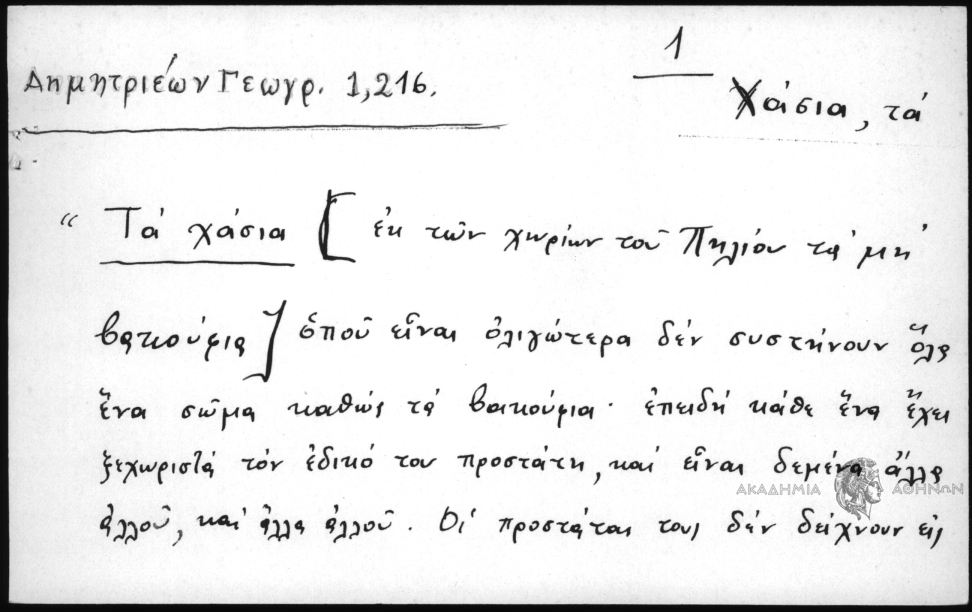 1
Δημητριέων Γεωγρ. 1,216.
Χάσια, τά
“ Τά χάσια [ ἐκ τῶν χωρίων τοῦ Πηλίου τά μή
βακούφια ] ὁποῦ εἶναι ὀλιγώτερα δέν συστήνουν ὅλα
ἕνα σῶμα καθώς τά βακούφια · ἐπειδή κάθε ἕνα ἔχει
ξεχωριστά τόν ἐδικό του προστάτη, καί εἶναι δεμένα ἄλλα
ἀλλοῦ, καί ἄλλα ἀλλοῦ. Οἱ προστάται τους δέν δείχνουν εἰς
ΑΚΑΔΗΜΙΑ ΑΘΗΝΩΝ